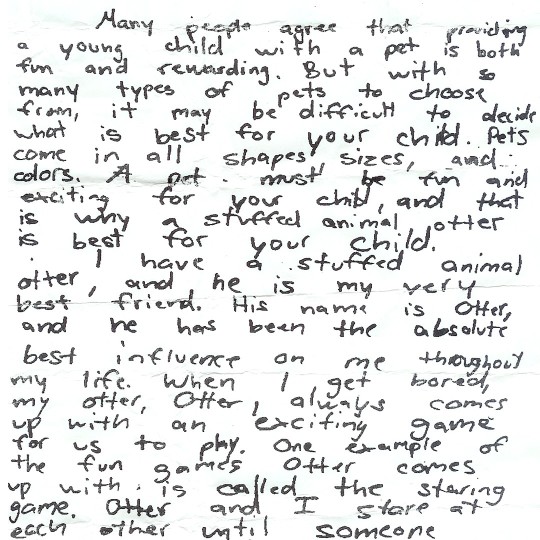 Many people agree that providing
a young child with a pet is both
fun and rewarding. But with so
many types of pets to choose
from, it may be difficult to decide
what is best for your child. Pets
come in all shapes, sizes, and
colors. A pet must be fun and
exciting for your child, and that
is why a stuffed animal otter
is best for your child.
I have a stuffed animal
otter, and he is my very
best friend. His name is Otter,
and he has been the absolute
best influence on me throughout
my life. When I get bored,
my otter, Otter, always comes
up with an exciting game
for us to play. One example of
the fun games Otter comes
up with is called the staring
game. Otter and I stare at
each other until someone